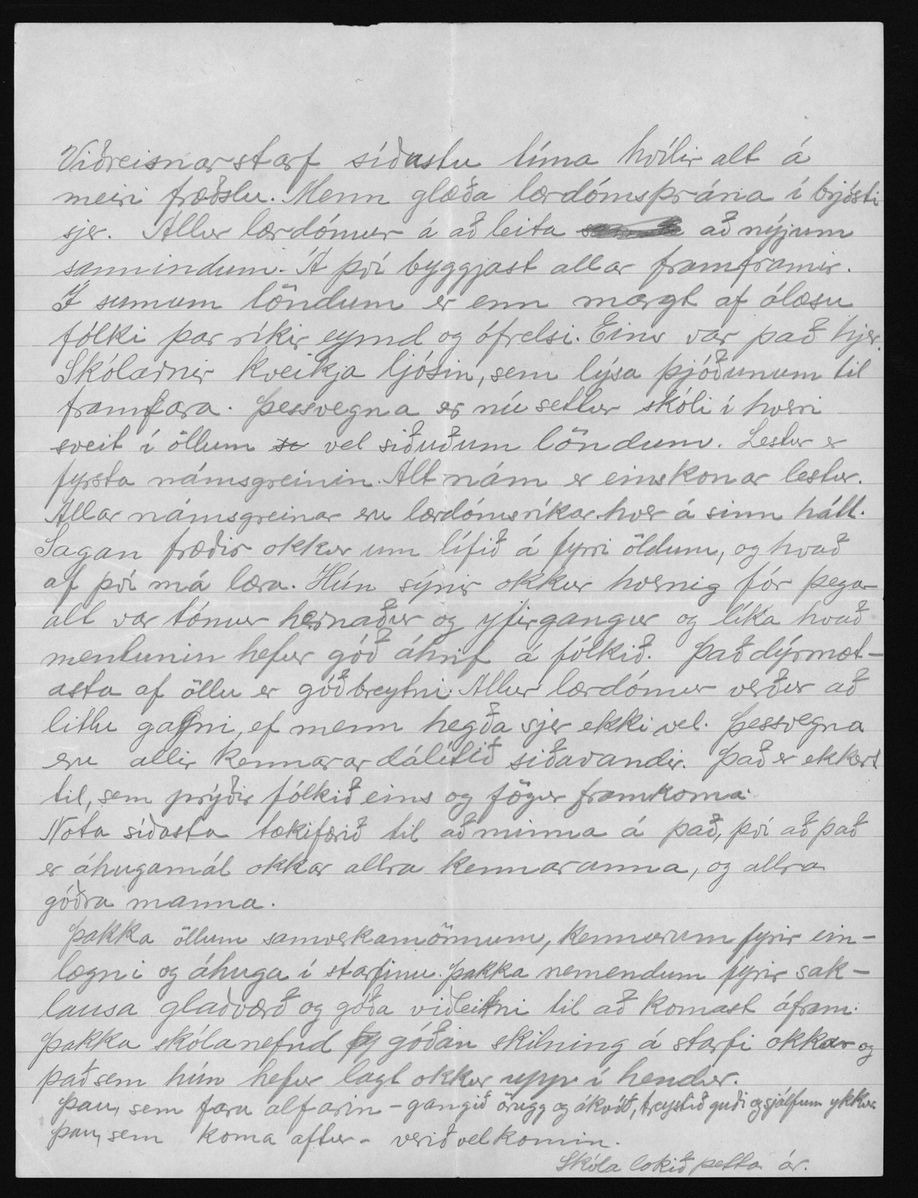 Viðreisnarstarf síðustu tíma hvílir alt á
meiri fræðslu. Menn glæða lærdómsþrána í brjósti
sjer. Allur lærdómur á að leita að nýjum
sannindum. Á því byggjast allar framfarnir.
Í sumum löndum er enn margt af ólæsu
fólki þar ríkir eymd og ófrelsi. Eins var það hjer.
Skólarnir kveikja ljósin, sem lýsa þjóðunum til
framfara. Þessvegna er nú settur skóli í hverri
sveit í öllum vel siðuðum löndum. Lestur er
fyrsta námsgreinin. Alt nám er einskonar lestur.
Allar námsgreinar eru lærdómsríkar hver á sinn hátt.
Sagan fræðir okkur um lífið á fyrri öldum, og hvað
af því má læra. Hún sýnir okkur hvernig fór þegar
alt var tómur hernaður og yfirgangur og líka hvað
mentunin hefur góð áhrif á fólkið. Það dýrmæt-
asta af öllu er góð breytni. Allur lærdómur verður að
litlu gagni, ef menn hegða sjer ekki vel. Þessvegna
eru allir kennarar dálítið siðavandir. Það er ekkert
til, sem prýðir fólkið eins og fögur framkoma.
Nota síðasta tækifærið til að minna á það, því að það
er áhugamál okkar allra kennaranna, og allra
góðra manna.
Þakka öllum samverkamönnum, kennurum fyrir ein-
lægni og áhuga í starfinu. Þakka nemendum fyrir sak-
lausa glaðværð og góða viðleitni til að komast áfram.
Þakka skólanefnd góðan skilning á starfi okkar og
það sem hún hefur lagt okkur upp í hendur.
Þau, sem fara alfarin - gangið örugg og ákveðið, treystið guði og sjálfum ykkur.
Þau, sem koma aftur - verið velkomin.
Skóla lokið þetta ár.